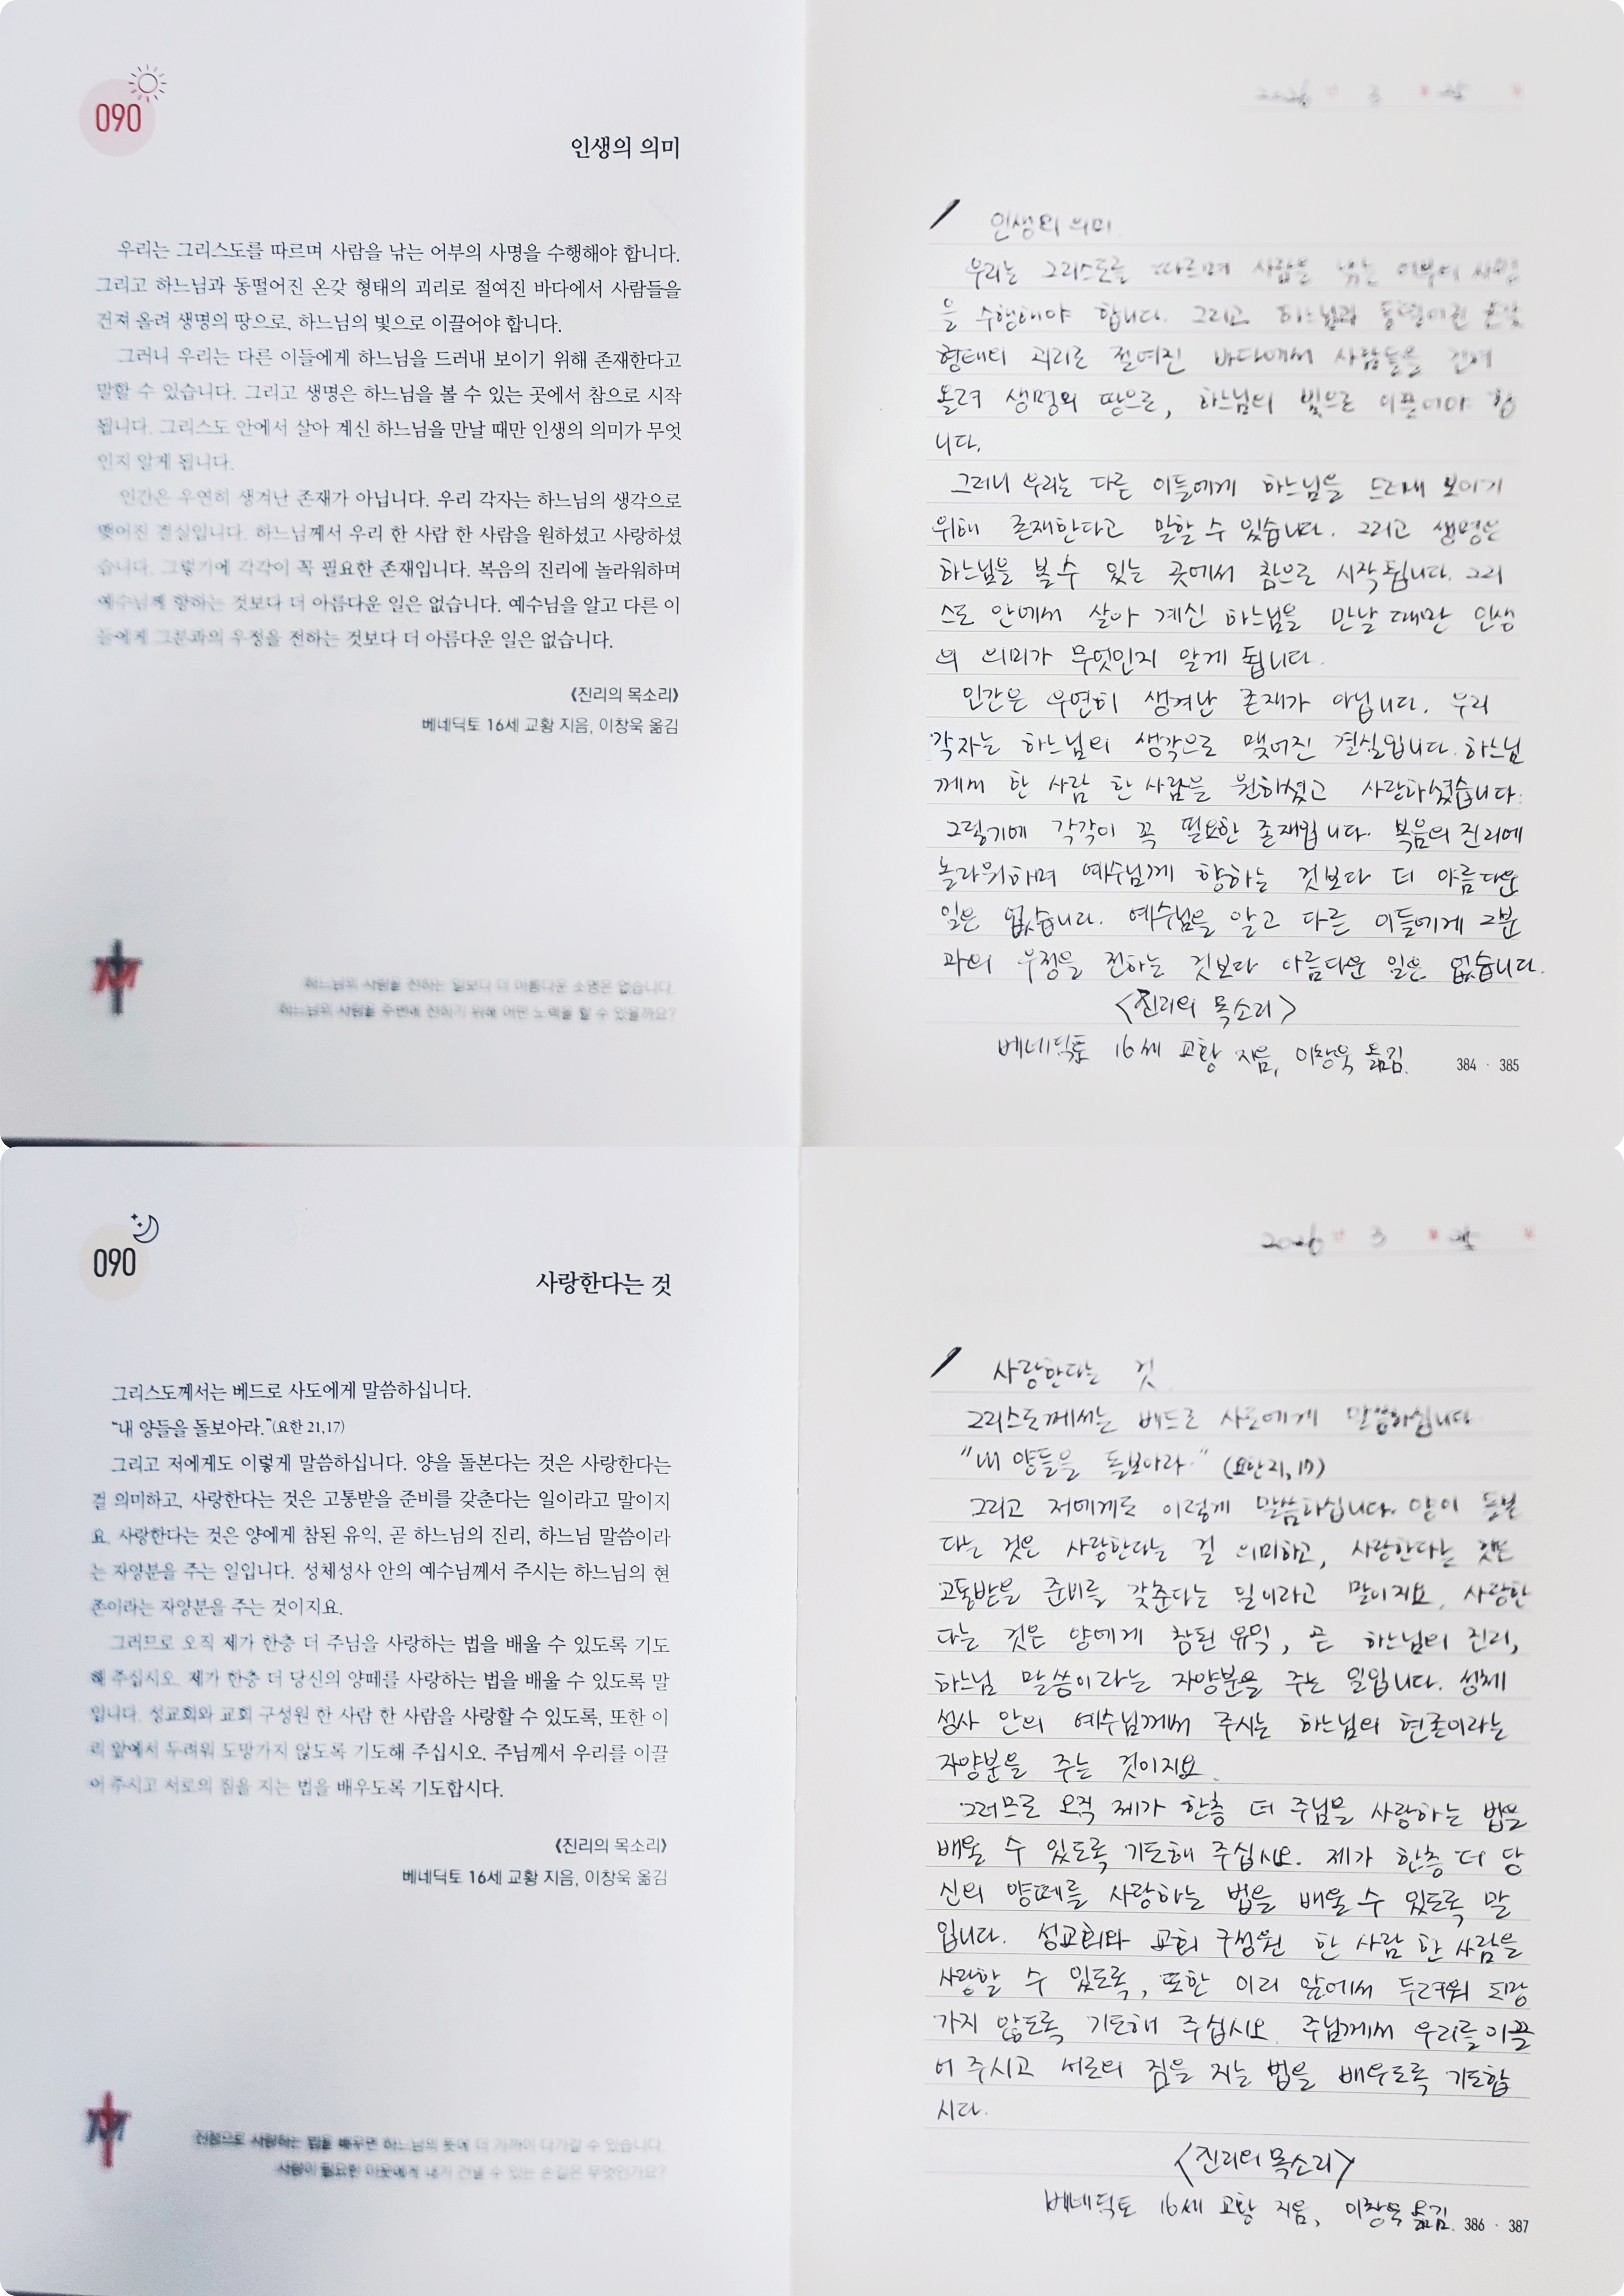 090
인생의 의미
우리는 그리스도를 따르며 사람을 낚는 어부의 사명을 수행해야 합니다.
그리고 하느님과 동떨어진 온갖 형태의 괴리로 절여진 바다에서 사람들을
건져 올려 생명의 땅으로, 하느님의 빛으로 이끌어야 합니다.
그러니 우리는 다른 이들에게 하느님을 드러내 보이기 위해 존재한다고
말할 수 있습니다. 그리고 생명은 하느님을 볼 수 있는 곳에서 참으로 시작
됩니다. 그리스도 안에서 살아 계신 하느님을 만날 때만 인생의 의미가 무엇
인지 알게 됩니다.
인간은 우연히 생겨난 존재가 아닙니다. 우리 각자는 하느님의 생각으로
맺어진 결실입니다. 하느님께서 우리 한 사람 한 사람을 원하셨고 사랑하셨
습니다. 그렇기에 각각이 꼭 필요한 존재입니다. 복음의 진리에 놀라워하며
예수님께 향하는 것보다 더 아름다운 일은 없습니다. 예수님을 알고 다른 이
들에게 그분과의 우정을 전하는 것보다 더 아름다운 일은 없습니다.
《진리의 목소리》
베네딕토 16세 교황 지음, 이창욱 옮김
하느님의 사랑을 전하는 일보다 더 아름다운 소명은 없습니다.
하느님의 사랑을 주변에 전하기 위해 어떤 노력을 할 수 있을까요?
2026 년 3 월 25 일
인생의 의미
우리는 그리스도를 따르며 사람을 낚는 어부의 사명
을 수행해야 합니다. 그리고 하느님과 동떨어진 온갖
형태의 괴리로 절여진 바다에서 사람들을 건져
올려 생명의 땅으로, 하느님의 빛으로 이끌어야 합
니다.
그러니 우리는 다른 이들에게 하느님을 드러내 보이기
위해 존재한다고 말할 수 있습니다. 그리고 생명은
하느님을 볼 수 있는 곳에서 참으로 시작됩니다. 그리
스도 안에서 살아 계신 하느님을 만날 때만 인생
의 의미가 무엇인지 알게 됩니다.
인간은 우연히 생겨난 존재가 아닙니다. 우리
각자는 하느님의 생각으로 맺어진 결실입니다. 하느님
께서 한 사람 한 사람을 원하셨고 사랑하셨습니다.
그렇기에 각각이 꼭 필요한 존재입니다. 복음의 진리에
놀라워하며 예수님께 향하는 것보다 더 아름다운
일은 없습니다. 예수님을 알고 다른 이들에게 그분
과의 우정을 전하는 것보다 아름다운 일은 없습니다.
<진리의 목소리>
베네딕토 16세 교황 지음, 이창욱 옮김.
384 · 385
090
사랑한다는 것
그리스도께서는 베드로 사도에게 말씀하십니다.
“내 양들을 돌보아라.”(요한 21,17)
그리고 저에게도 이렇게 말씀하십니다. 양을 돌본다는 것은 사랑한다는
걸 의미하고, 사랑한다는 것은 고통받을 준비를 갖춘다는 일이라고 말이지
요. 사랑한다는 것은 양에게 참된 유익, 곧 하느님의 진리, 하느님 말씀이라
는 자양분을 주는 일입니다. 성체성사 안의 예수님께서 주시는 하느님의 현
존이라는 자양분을 주는 것이지요.
그러므로 오직 제가 한층 더 주님을 사랑하는 법을 배울 수 있도록 기도
해 주십시오. 제가 한층 더 당신의 양떼를 사랑하는 법을 배울 수 있도록 말
입니다. 성교회와 교회 구성원 한 사람 한 사람을 사랑할 수 있도록, 또한 이
리 앞에서 두려워 도망가지 않도록 기도해 주십시오. 주님께서 우리를 이끌
어 주시고 서로의 짐을 지는 법을 배우도록 기도합시다.
《진리의 목소리》
베네딕토 16세 교황 지음, 이창욱 옮김
진정으로 사랑하는 법을 배우면 하느님의 뜻에 더 가까이 다가갈 수 있습니다.
사랑이 필요한 이웃에게 내가 건넬 수 있는 손길은 무엇인가요?
2026 년 3 월 25 일
사랑한다는 것
그리스도께서는 베드로 사도에게 말씀하십니다
“내 양들을 돌보아라.” (요한 21, 17)
그리고 저에게도 이렇게 말씀하십니다. 양이 돌본
다는 것은 사랑한다는 걸 의미하고, 사랑한다는 것은
고통받을 준비를 갖춘다는 일이라고 말이지요. 사랑한
다는 것은 양에게 참된 유익, 곧 하느님의 진리,
하느님 말씀이라는 자양분을 주는 일입니다. 성체
성사 안의 예수님께서 주시는 하느님의 현존이라는
자양분을 주는 것이지요.
그러므로 오직 제가 한층 더 주님을 사랑하는 법을
배울 수 있도록 기도해 주십시오. 제가 한층 더 당
신의 양떼를 사랑하는 법을 배울 수 있도록 말
입니다. 성교회와 교회 구성원 한 사람 한 사람을
사랑할 수 있도록, 또한 이리 앞에서 두려워 도망
가지 않도록 기도해 주십시오. 주님께서 우리를 이끌
어 주시고 서로의 짐을 지는 법을 배우도록 기도합
시다.
<진리의 목소리>
베네딕토 16세 교황 지음, 이창욱 옮김.
386 · 387